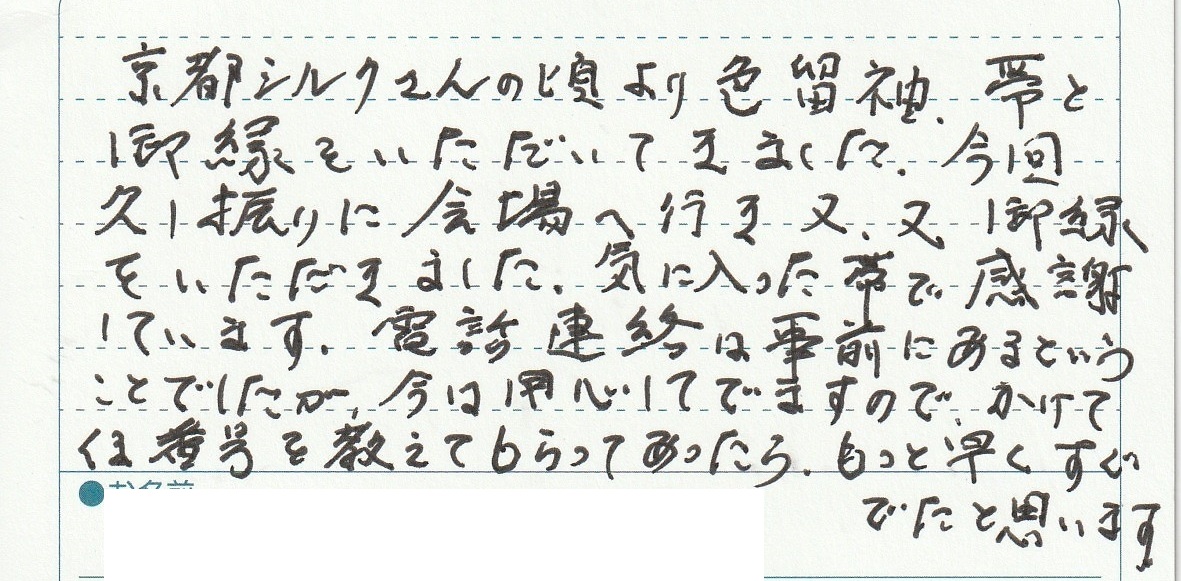 京都シルクさんの頃より色留袖、帯と
御縁をいただいてきました。今回
久し振りに会場へ行き又、又、御縁
をいただきました。気に入った帯で感謝
しています。電話連絡は事前にあるという
ことでしたが、今は用心してでますので、かけて
くる番号を教えてもらってあったら、もっと早くすぐ
でたと思います
●お名前